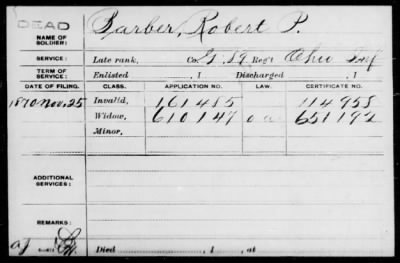 DEAD
NAME OF SOLDIER: Barber, Robert P.
SERVICE: Late rank, Co. G. 89 Reg't Ohio Inf
TERM OF SERVICE: Enlisted , 1 Discharged , 1
DATE OF FILING. CLASS. APPLICATION NO. LAW. CERTIFICATE NO.
1870 Nov. 25 Invalid, 161485 114958
Widow, 610147 651192
Minor,
ADDITIONAL SERVICES:
REMARKS:
Died , 1 , at